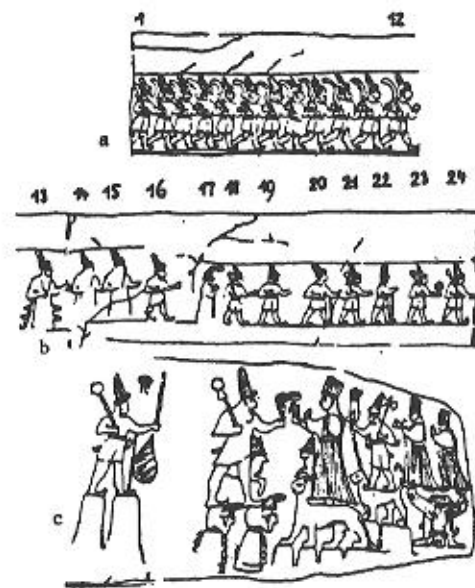 1 12
a
13 14 15 16 17 18 19 20 21 22 23 24
b
c